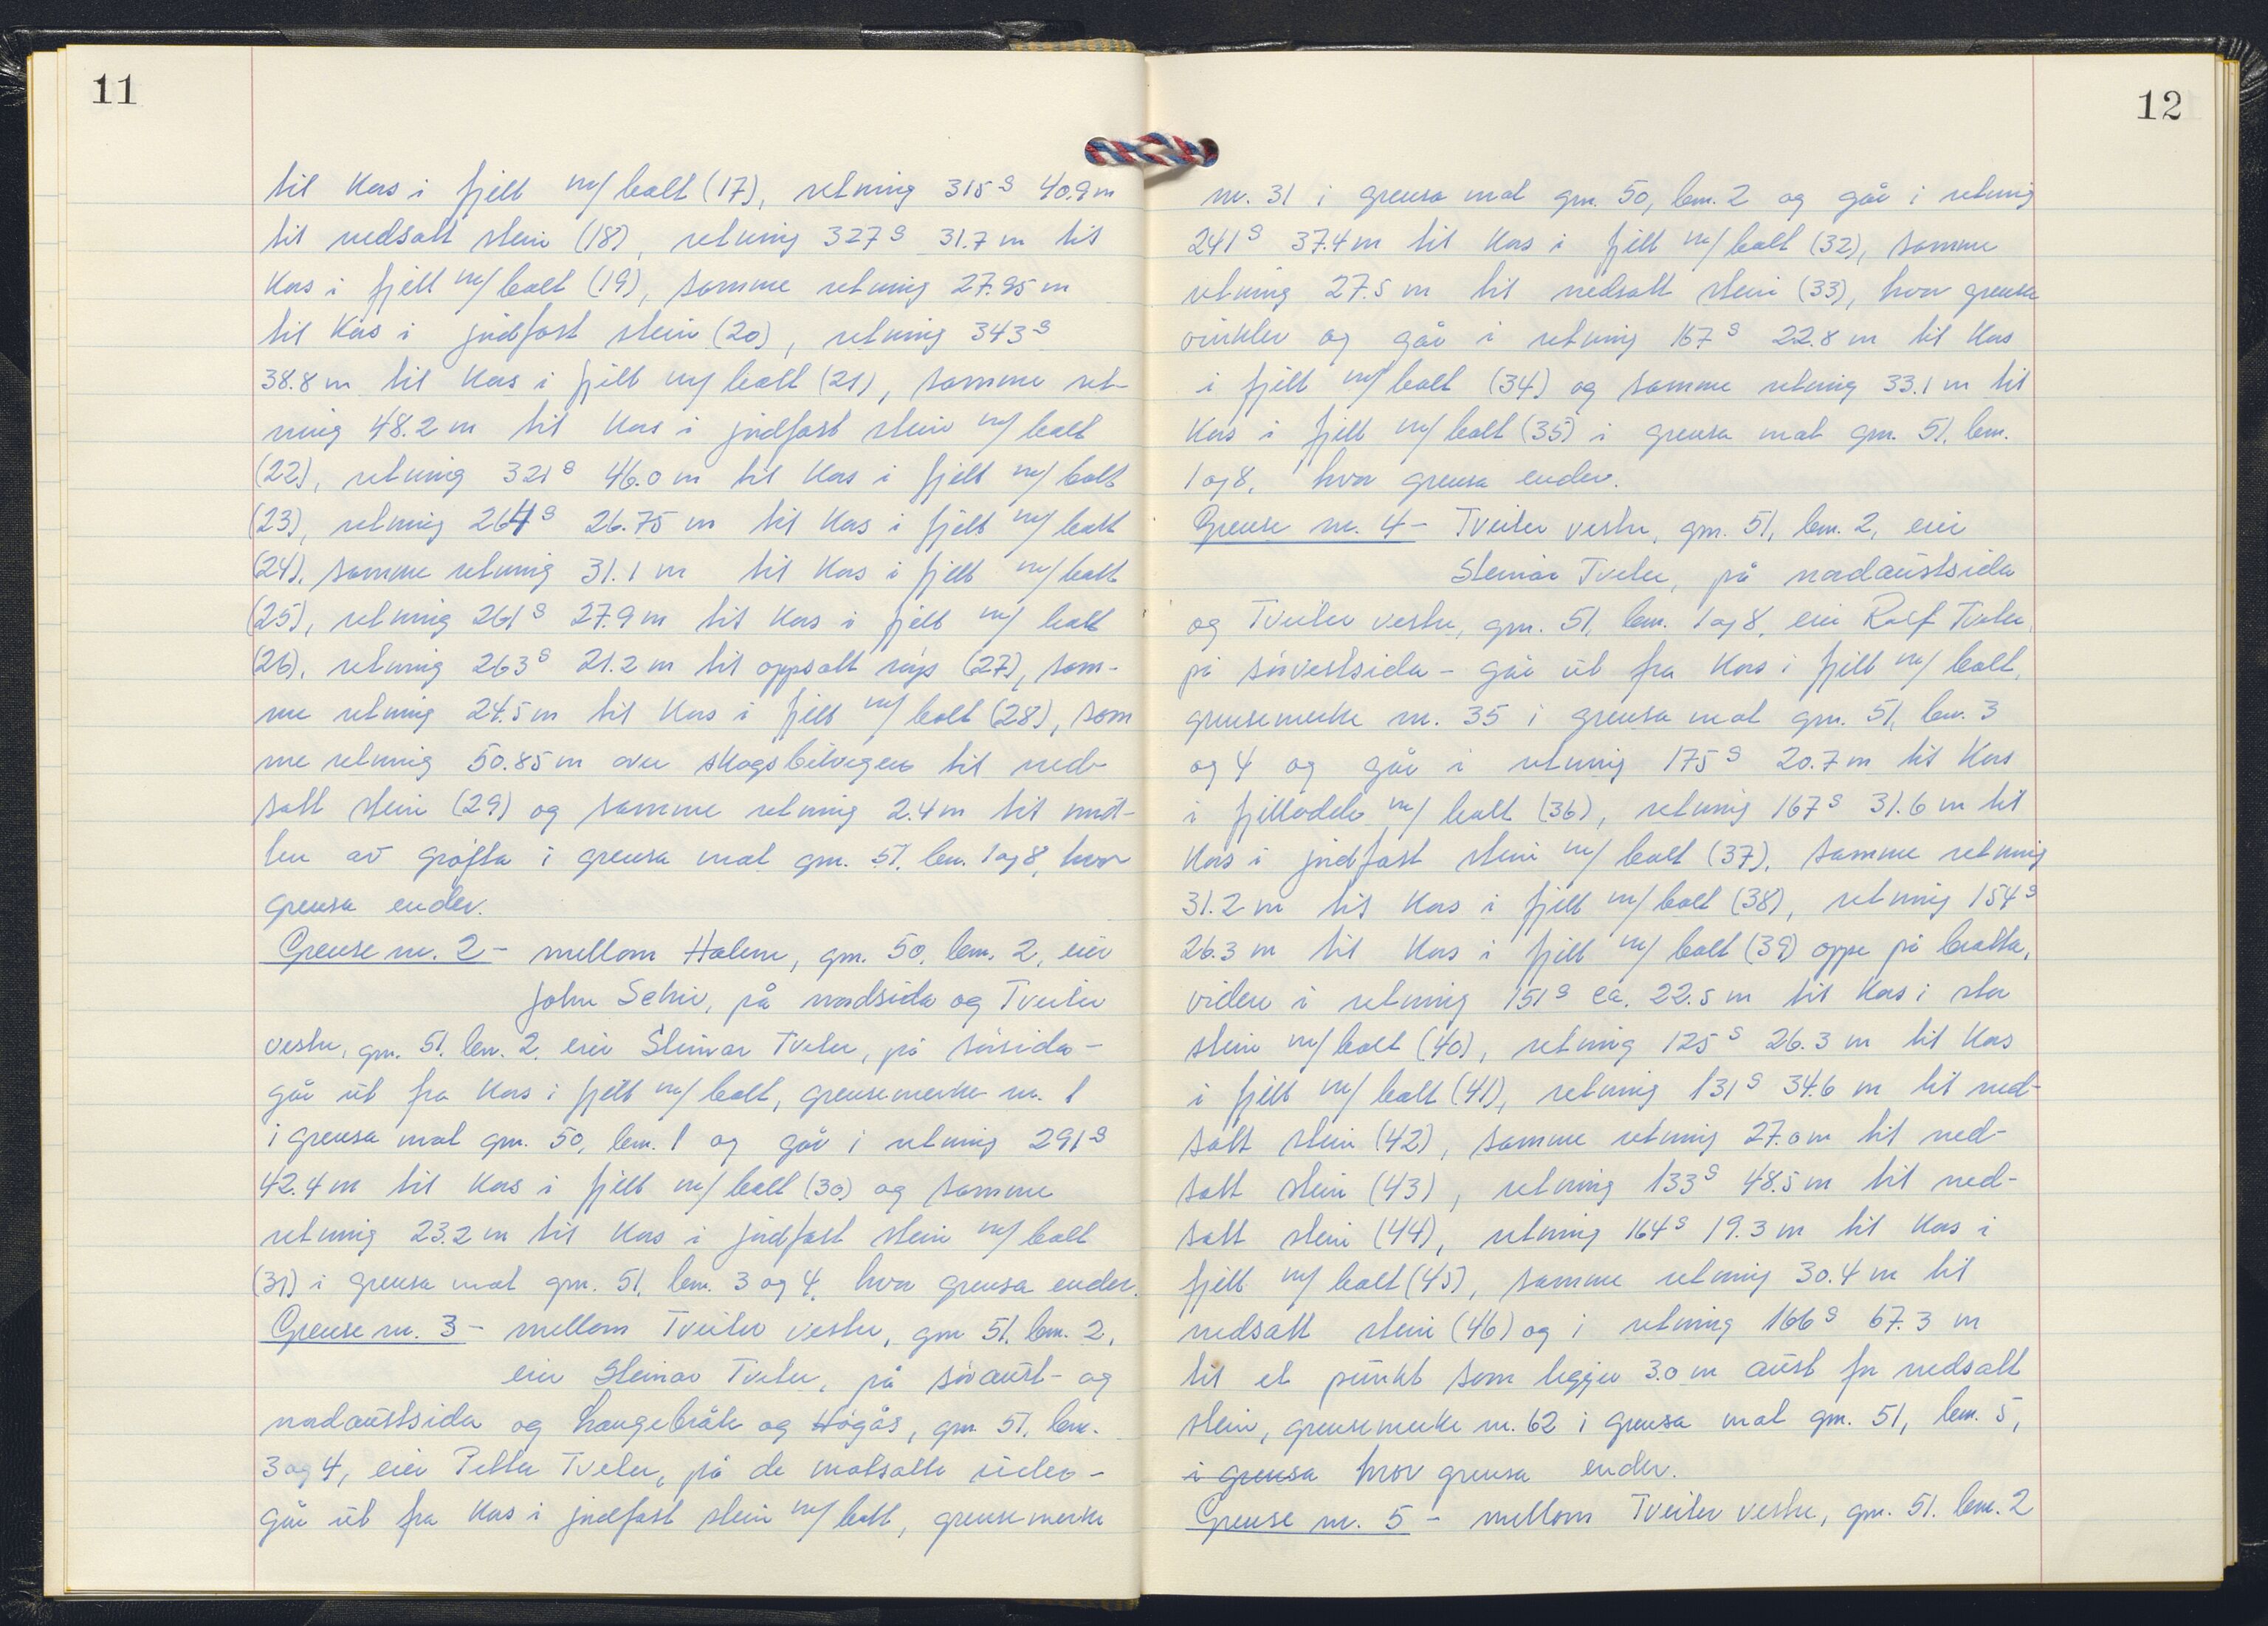 11
til kors i fjell m/ bolt (17), retning 315 g 40.9 m
til nedsatt stein (18), retning 327 g 31.7 m til
kors i fjell m/ bolt (19), samme retning 27.95 m
til kors i jordfast stein (20), retning 343 g
38.8 m til kors i fjell m/ bolt (21), samme ret-
ning 48.2 m til kors i jordfast stein m/ bolt
(22), retning 321 g 46.0 m til kors i fjell m/ bolt
(23), retning 264 g 26.75 m til kors i fjell m/ bolt
(24), samme retning 31.1 m til kors i fjell m/ bolt
(25), retning 261 g 27.9 m til kors i fjell m/ bolt
(26), retning 263 g 21.2 m til oppsatt røys (27), sam-
me retning 24.5 m til kors i fjell m/ bolt (28), sam
me retning 50.85 m over skogsbilvegen til ned-
satt stein (29) og samme retning 2.4 m til mid-
ten av grøfta i grensa mot gnr. 51, bnr. 1 og 8, hvor
grensa ender.
Grense nr. 2 - mellom Holene, gnr. 50, bnr. 2, eier
John Schie, på nordsida og Tveiter
vestre, gnr. 51, bnr. 2, eier Steinar Tveter, på sørsida -
går ut fra kors i fjell m/ bolt, grensemerke nr. 1
i grensa mot gnr. 50, bnr. 1 og går i retning 291 g
42.4 m til kors i fjell m/ bolt (30) og samme
retning 23.2 m til kors i jordfast stein m/ bolt
(31) i grensa mot gnr. 51, bnr. 3 og 4, hvor grensa ender.
Grense nr. 3 - mellom Tveiter vestre, gnr 51, bnr. 2,
eier Steinar Tveter, på søraust- og
nordaustsida og Langebråte og Høgås, gnr. 51, bnr.
3 og 4, eier Petter Tveter, på de motsatte sider -
går ut fra kors i jordfast stein m/ bolt, grensemerke
12
nr. 31 i grensa mot gnr. 50, bnr. 2 og går i retning
241 g 37.4 m til kors i fjell m/ bolt (32), samme
retning 27.5 m til nedsatt stein (33), hvor grensa
vinkler og går i retning 167 g 22.8 m til kors
i fjell m/ bolt (34) og samme retning 33.1 m til
kors i fjell m/ bolt (35) i grensa mot gnr. 51, bnr.
1 og 8, hvor grensa ender.
Grense nr. 4 - Tveiter vestre, gnr. 51, bnr. 2, eier
Steinar Tveter, på nordaustsida
og Tveiter vestre, gnr. 51, bnr. 1 og 8, eier Rolf Tveter,
på sørvestsida - går ut fra kors i fjell m/ bolt,
grensemerke nr. 35 i grensa mot gnr. 51, bnr. 3
og 4 og går i retning 175 g 20.7 m til kors
i fjellodde m/ bolt (36), retning 167 g 31.6 m til
kors i jordfast stein m/ bolt (37), samme retning
31.2 m til kors i fjell m/ bolt (38), retning 154 g
26.3 m til kors i fjell m/ bolt (39) oppe på bratta,
videre i retning 151 g ca. 22.5 m til kors i stor
stein m/ bolt (40), retning 125 g 26.3 m til kors
i fjell m/ bolt (41), retning 131 g 34.6 m til ned-
satt stein (42), samme retning 27.0 m til ned-
satt stein (43), retning 133 g 48.5 m til ned-
satt stein (44), retning 164 g 19.3 m til kors i
fjell m/ bolt (45), samme retning 30.4 m til
nedsatt stein (46) og i retning 166 g 67.3 m
til et punkt som ligger 3.0 m aust for nedsatt
stein, grensemerke nr. 62 i grensa mot gnr. 51, bnr. 5,
i grensa hvor grensa ender.
Grense nr. 5 - mellom Tveiter vestre, gnr. 51, bnr. 2